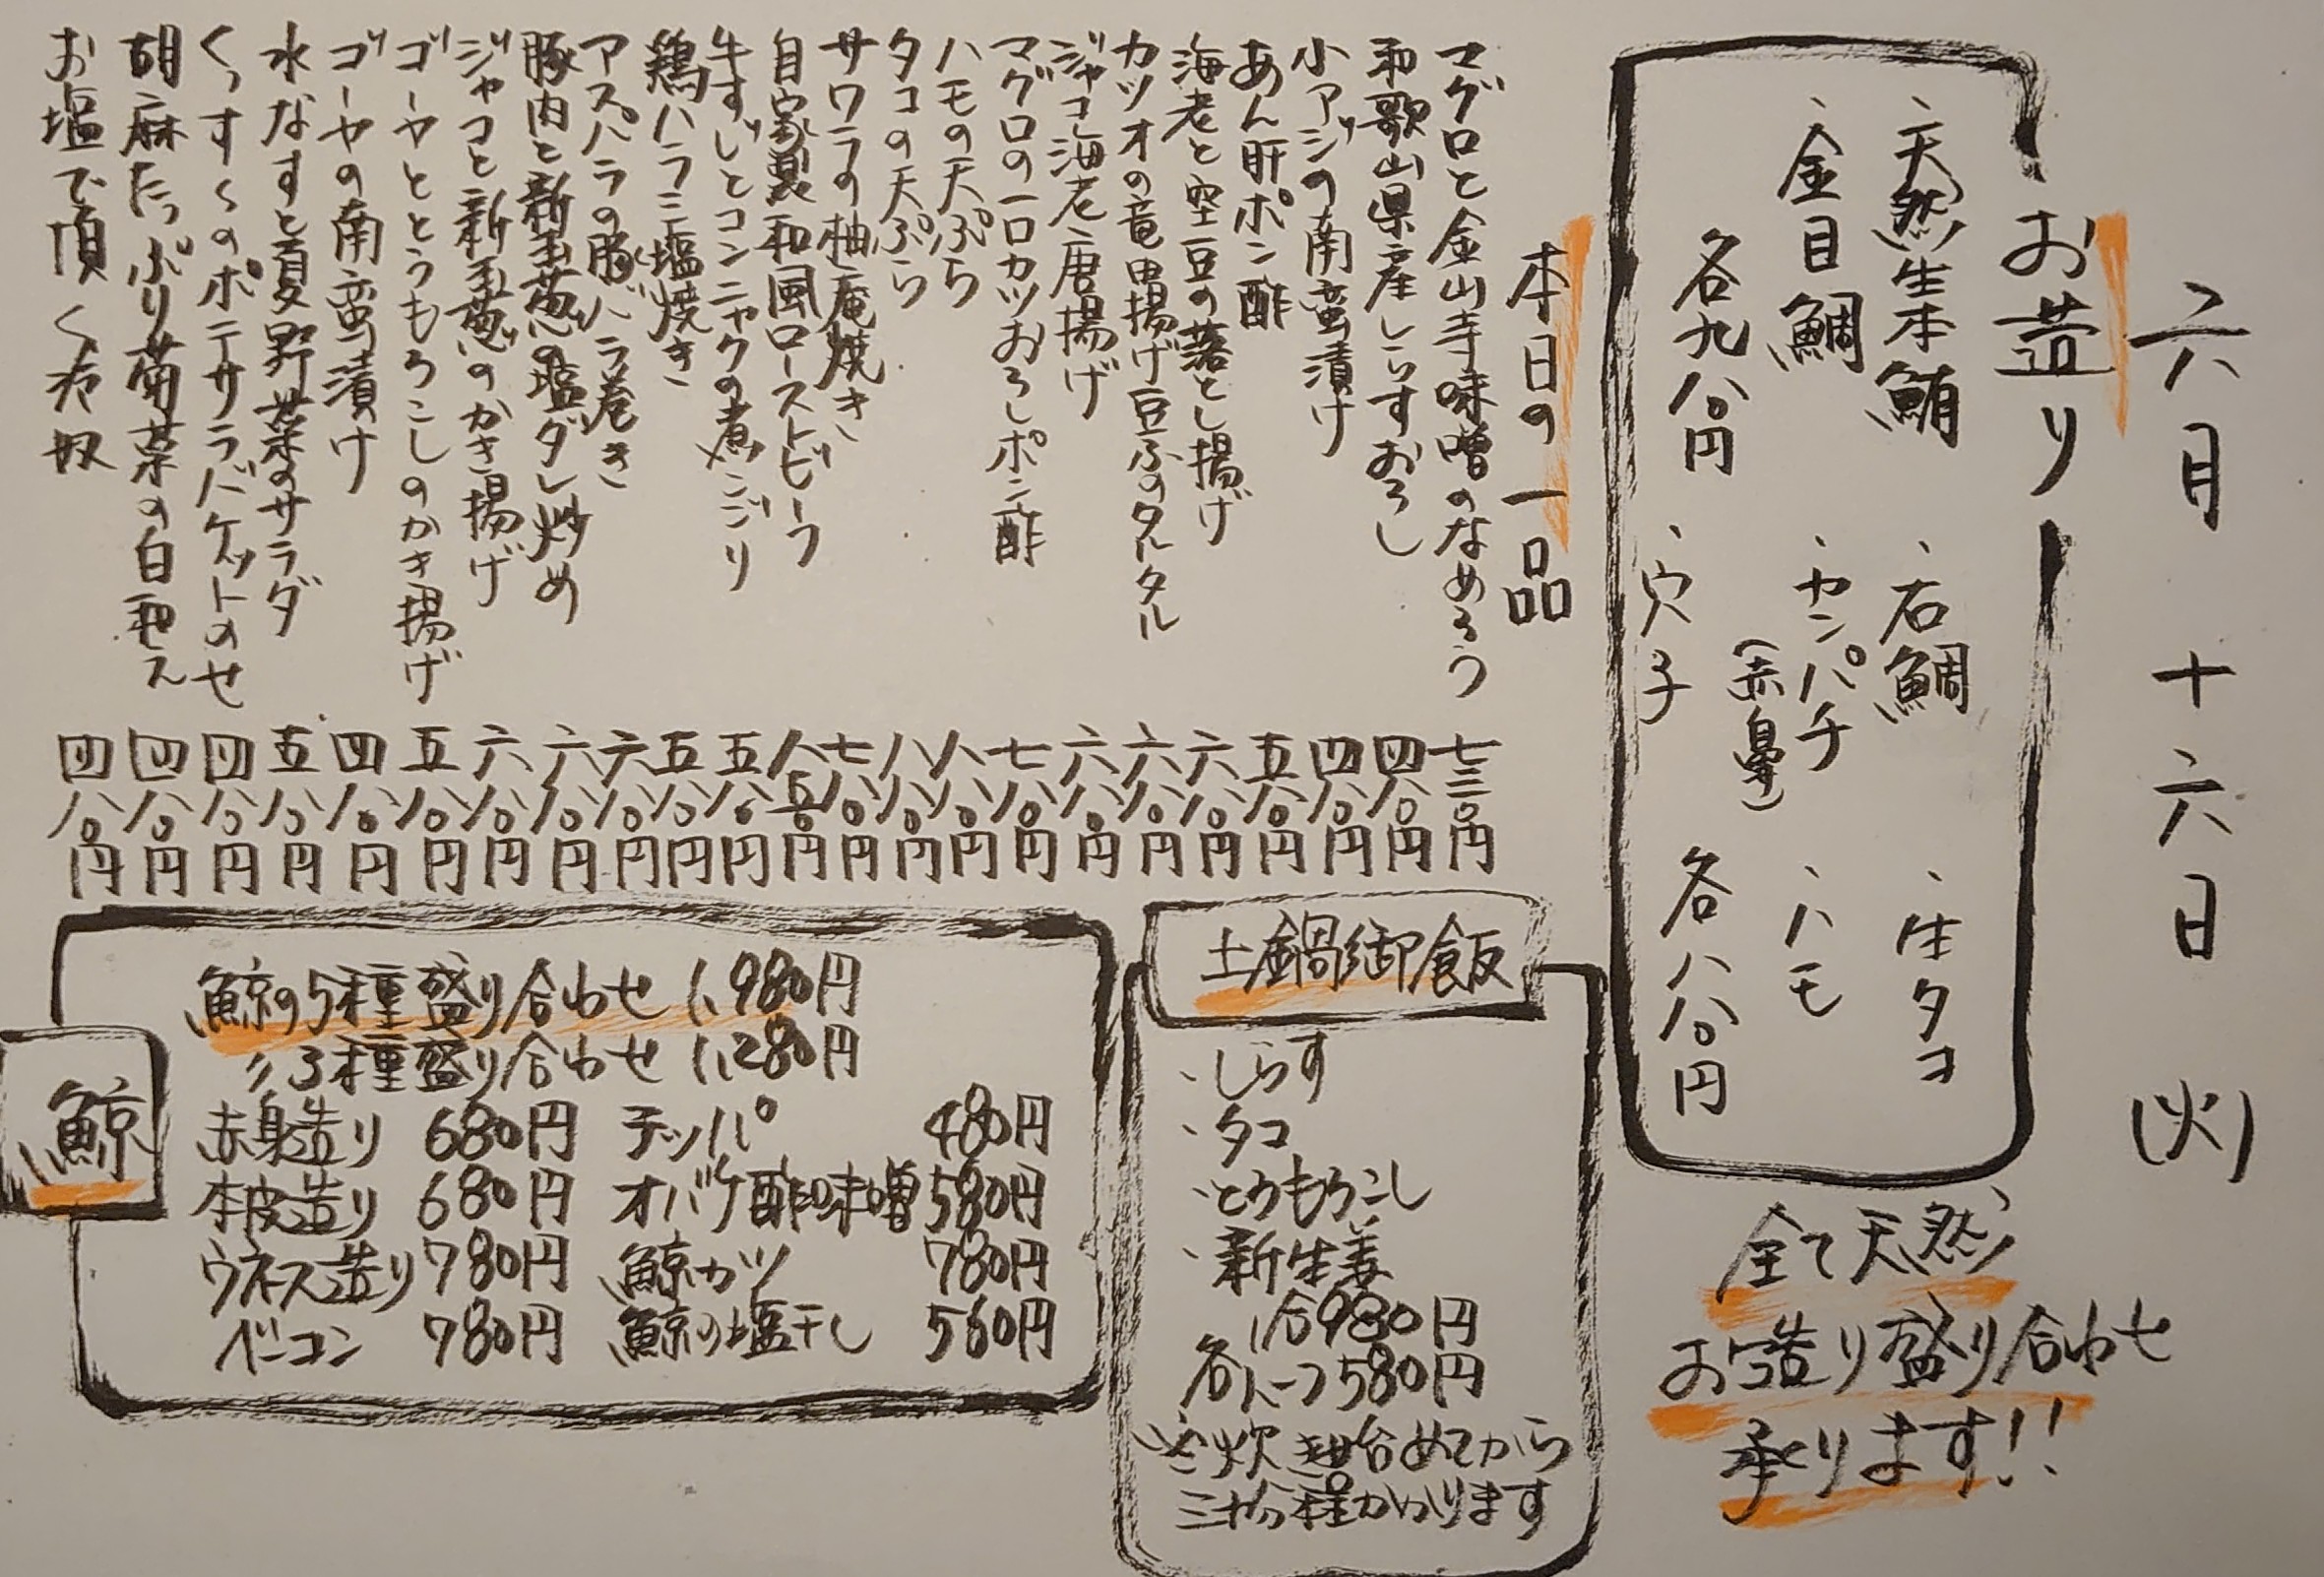 六月 十六日 (火)
お造り
・天然生本鮪 ・石鯛 ・生タコ
・金目鯛 ・カンパチ(赤鼻) ・ハモ
各九八〇円 ・穴子 各八八〇円
全て天然
お造り盛り合わせ
承ります!!
本日の一品
マグロと金山寺味噌のなめろう 七三〇円
和歌山県産しらすおろし 四八〇円
小アジの南蛮漬け 四八〇円
あん肝ポン酢 五八〇円
海老と空豆の落とし揚げ 六八〇円
カツオの竜田揚げ豆ふのタルタル 六八〇円
ジャコ海老唐揚げ 六八〇円
マグロの一口カツおろしポン酢 七八〇円
ハモの天ぷら 八八〇円
タコの天ぷら 八八〇円
サワラの柚庵焼き 七八〇円
自家製和風ローストビーフ 八五〇円
牛すじとコンニャクの煮こごり 五八〇円
鶏ハラミ塩焼き 五八〇円
アスパラの豚バラ巻き 六八〇円
豚肉と新玉葱の塩ダレ炒め 六八〇円
ジャコと新玉葱のかき揚げ 六八〇円
ゴーヤととうもろこしのかき揚げ 五八〇円
ゴーヤの南蛮漬け 四八〇円
水なすと夏野菜のサラダ 五八〇円
くんすくのポテサラバケットのせ 四八〇円
胡麻たっぷり菊菜の白和え 四八〇円
お塩で頂く冷奴 四八〇円
土鍋御飯
・しらす
・タコ
・とうもろこし
・新生姜
1合980円
各ハーフ580円
※炊き始めてから
三十分程かかります
鯨
鯨の5種盛り合わせ 1,980円
〃3種盛り合わせ 1,280円
赤身造り 680円 テッパ 480円
本皮造り 680円 オバケ酢味噌 580円
ウネス造り 780円 鯨カツ 780円
ベーコン 780円 鯨の塩干し 560円